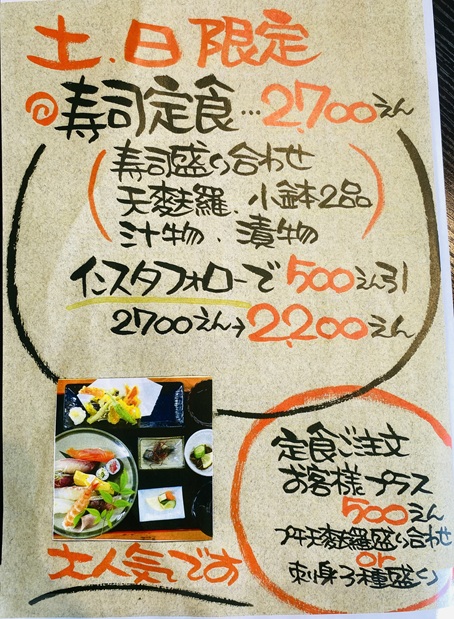 土、日限定
@寿司定食…2,700えん
寿司盛り合わせ
天麩羅、小鉢2品
汁物、漬物
インスタフォローで500えん引
2700えん→2,200えん
定食ご注文
お客様プラス
500えん
プチ天麩羅盛り合わせ
or
刺身3種盛り
大人気です